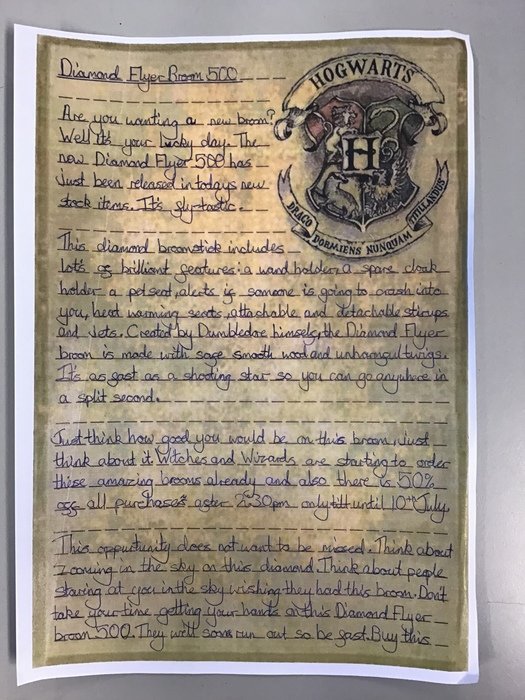 Diamond Flyer Broom 500
HOGWARTS
Are you wanting a new broom?
Well it's your lucky day. The
new Diamond Flyer 500 has
just been released in todays new
stock items. It's fly-tastic.
H
DRACO DORMIENS NUNQUAM TITILLANDUS
This diamond broomstick includes
lot's of brilliant features: a wand holder, a spare cloak
holder a pet seat, alerts if someone is going to crash into
you, heat warming seats, attachable and detachable stirups
and jets. Created by Dumbledore himself, the Diamond Flyer
broom is made with safe smooth wood and unharmful twigs.
It's as fast as a shooting star so you can go anywhere in
a split second.
Just think how good you would be on this broom, just
think about it. Witches and Wizards are starting to order
these amazing brooms already and also there is 50%
off all purchases after 2:30pm only until 10th July.
This oppurtunity does not want to be missed. Think about
zooming in the sky on this diamond. Think about people
staring at you in the sky wishing they had this broom. Don't
take your time getting your hands on this Diamond Flyer
broom 500. They will soon run out so be fast. Buy this